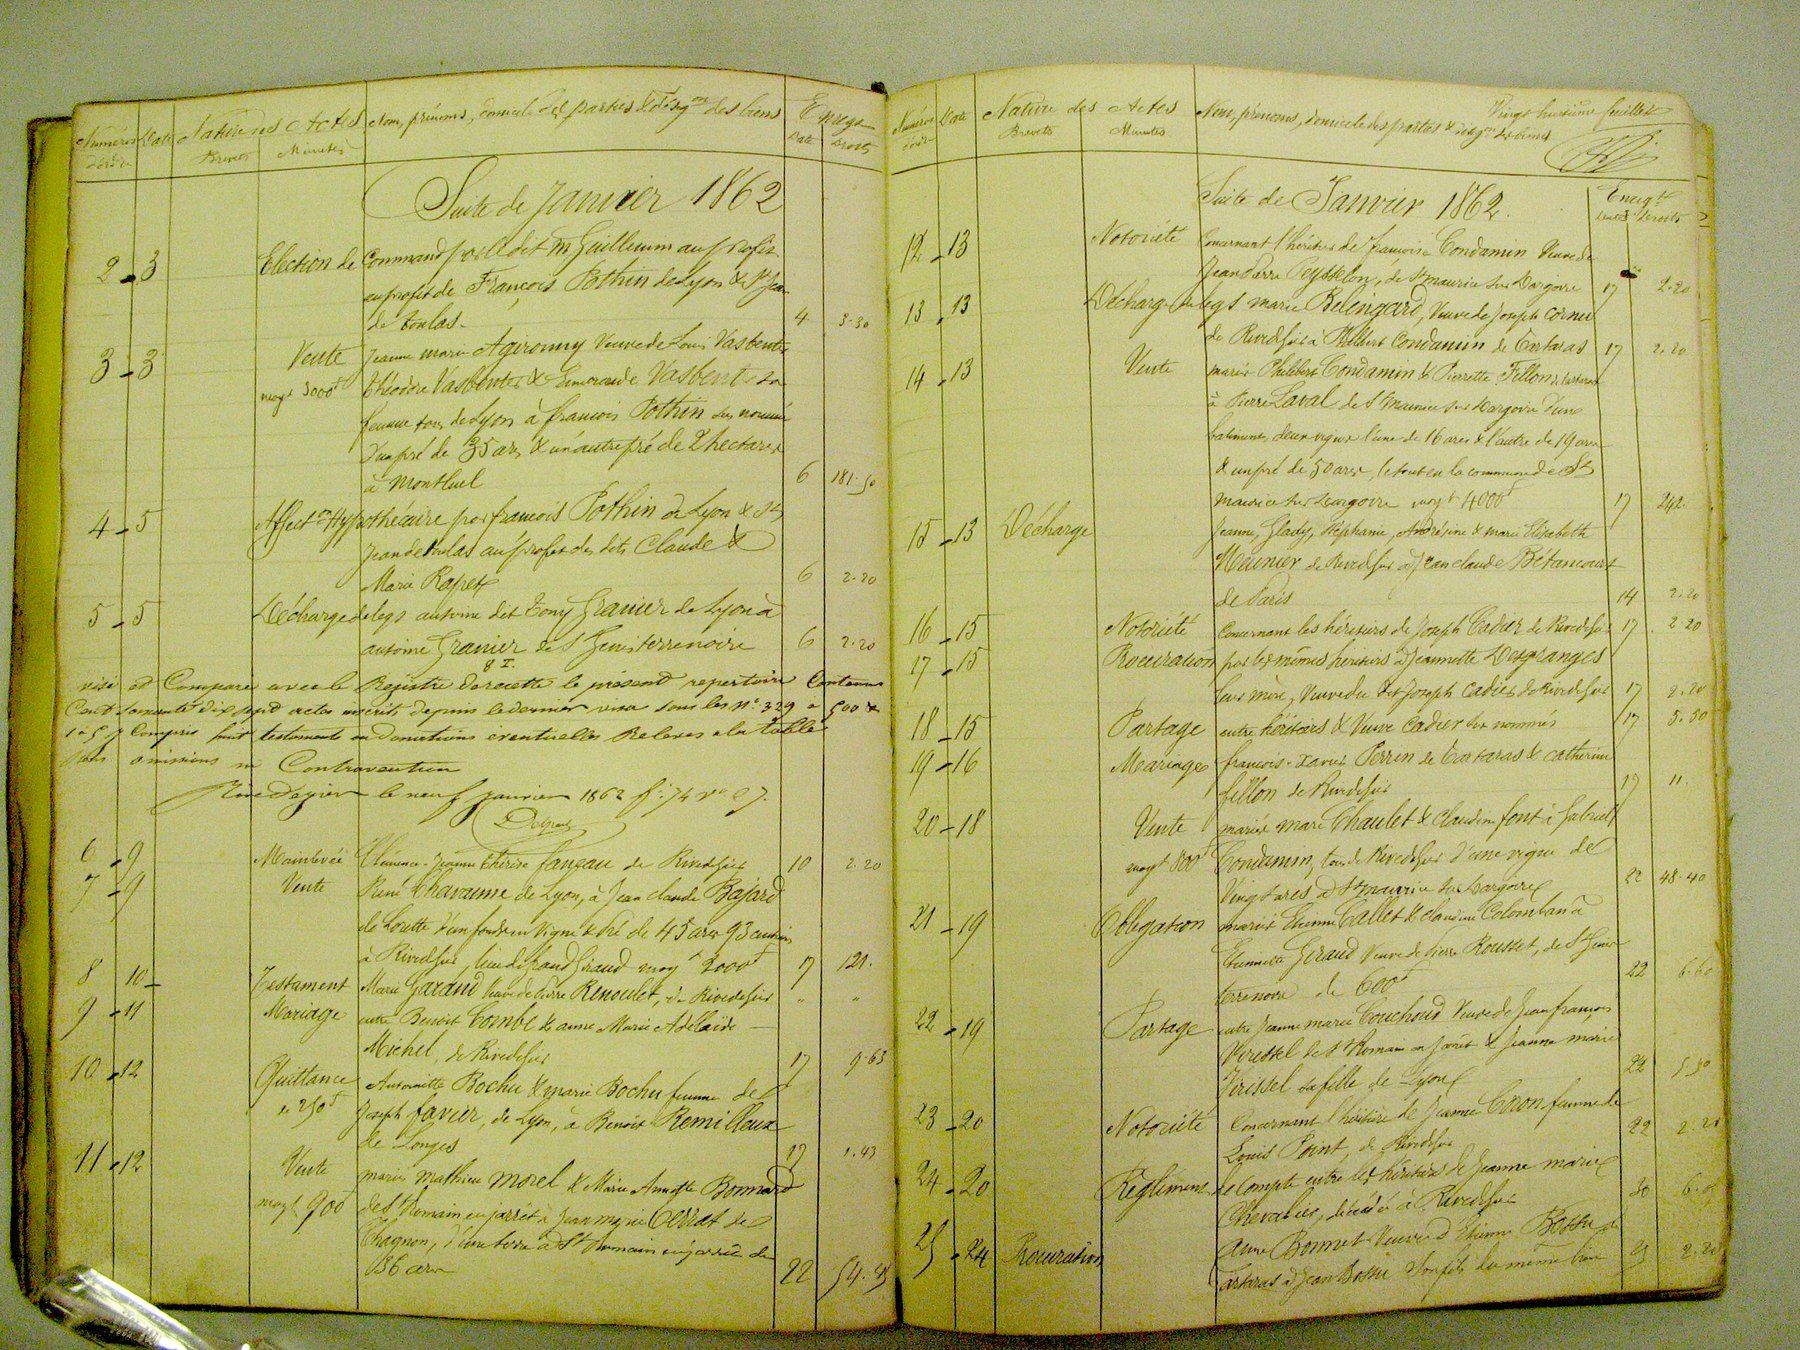 Numéros d'ordre Date Nature des Actes Brevets Minutes Nom, prénoms, domicile des parties & désign.on des biens Enregt Date Droits
Suite de Janvier 1862
2 - 3 Election de Command par ledit M Guillemin au profit
au profit de François Pothin de Lyon & St Jean
de toulas. 4 3.30
3 - 3 Vente Jeanne marie Agironny Veuve de Louis Vasbenter
moyt 3000f théodore Vasbenter & Emeraude Vasbenter sa
femme tous de Lyon à francois Pothin sus nommé
D'un pré de 35 ares & un autre pré de 2 hectares
à Montluel 6 181.50
4 - 5 Affect.on Hypothécaire par francois Pothin de Lyon & St
Jean de toulas au profit des dits Claude &
Marie Rapet 6 2.20
5 - 5 Décharge de legs antoine dit Tony Granier de Lyon à
antoine Granier de St Genis terrenoire 6 2.20
visé et Comparé avec le Registre de recette le présent repertoire Contenant
Cent soixante dix sept actes inscrits depuis le dernier visa sous les nos 329 a 500 &
1 a 5 y Compris huit testaments ou Donations eventuelles Relevés a la table
sans omissions ni Contravention
Rive de gier le neuf janvier 1862 fo 74 vo
6 - 9 Mainlevée Clémence Jeanne thérèse fangau de Rivedegier 10 2.20
7 - 9 Vente René Chavanne de Lyon, à Jean claude Bajard
de Loutte d'un fonds en Vigne & pré de 45 ares 93 centiares
à Rivedegier, lieu de grand Giraud moyt 2000f 17 121.
8 10 - Testament Marie Garand Veuve de Pierre Renoulet, de Rivedegier " "
9 - 11 Mariage entre Benoit Combe & anne Marie Adélaïde
Michel, de Rivedegier 17 9.63
10 - 12 Quittance Antoinette Bochu & marie Bochu femme de
de 250f Joseph favier, de Lyon, à Benoit Remilleux
de Longes 17 1.43
11 - 12 Vente mariés Mathieu Morel & Marie Annette Bonnard
moyt 900f de St Romain en jarrêt à Jean marie de
Chagnon, d'une terre à St Romain en jarrêt de
36 ares 22 54.45
Vingt huitième feuillet
Numéros d'ordre Date Nature des Actes Brevets Minutes Nom, prénoms, domicile des parties & désign.on des biens
Suite de Janvier 1862. Enregt Dates Droits
12 - 13 Notoriété Concernant l'héritier de francois Condamin Veuve de
Jean Pierre Peysselon, de St maurice sur Dargoire 17 2.20
13 - 13 Décharge de legs marie Berengard, Veuve de Joseph Cornu
de Rivedegier à Philibert Condamin de Tartaras 17 2.20
14 - 13 Vente mariés Philibert Condamin & Pierrette Fillon de tartaras
à Pierre Laval de St Maurice sur Dargoire d'une
batiment, deux vignes l'une de 16 ares & l'autre de 19 ares
& un pré de 50 ares, le tout en la commune de St
Maurice sur Dargoire moyt 4000f 17 242.
15 - 13 Décharge Jeanne, Glady, Stéphanie, Andrésine & marie Elisabeth
Meunier de Rivedegier à Jean claude Bétancourt
de Paris 14 2.20
16 - 15 Notoriété Concernant les héritiers de Joseph Cadier de Rivedegier 17 . 2.20
17 - 15 Procuration par les mêmes héritiers à Jeannette Desgranges
leur mère, Veuve du dit Joseph Cadier de Rivedegier 17 2.20
18 - 15 Partage entre héritiers & Veuve Cadier sus nommés 17 5.50
19 - 16 Mariage francois-xavier Perrin de Tartaras & catherine
fillon de Rivedegier 17 11.
20 - 18 Vente mariés marc Chaulet & Claudine font à Gabriel
moyt 800f Condamin, tous de Rivedegier d'une vigne de
Vingt ares à St maurice sur Dargoire 22 48.40
21 - 19 Obligation mariés Etienne Callet & claudine Colomban à
Etiennette Giraud Veuve de Pierre Rousset, de St Genis
terrenoire de 600f 22 6.60
22 - 19 Partage entre Jeanne marie Couchoud Veuve de Jean françois
Virissel de St Romain en Jarret & Jeanne marie
Virissel sa fille de Lyon 22 5.50
23 - 20 Notoriété Concernant l'héritière de Jeanne Coron femme de
Louis Point, de Rivedegier 22 2.20
24 - 20 Règlement de Compte entre les héritiers de Jeanne marie
Chevalier, décédée à Rivedegier 30 6.
25 - 24 Procuration Anne Bonnet Veuve d'Etienne Bossu de
tartaras à Jean Bossu son fils du même lieu 25 2.20